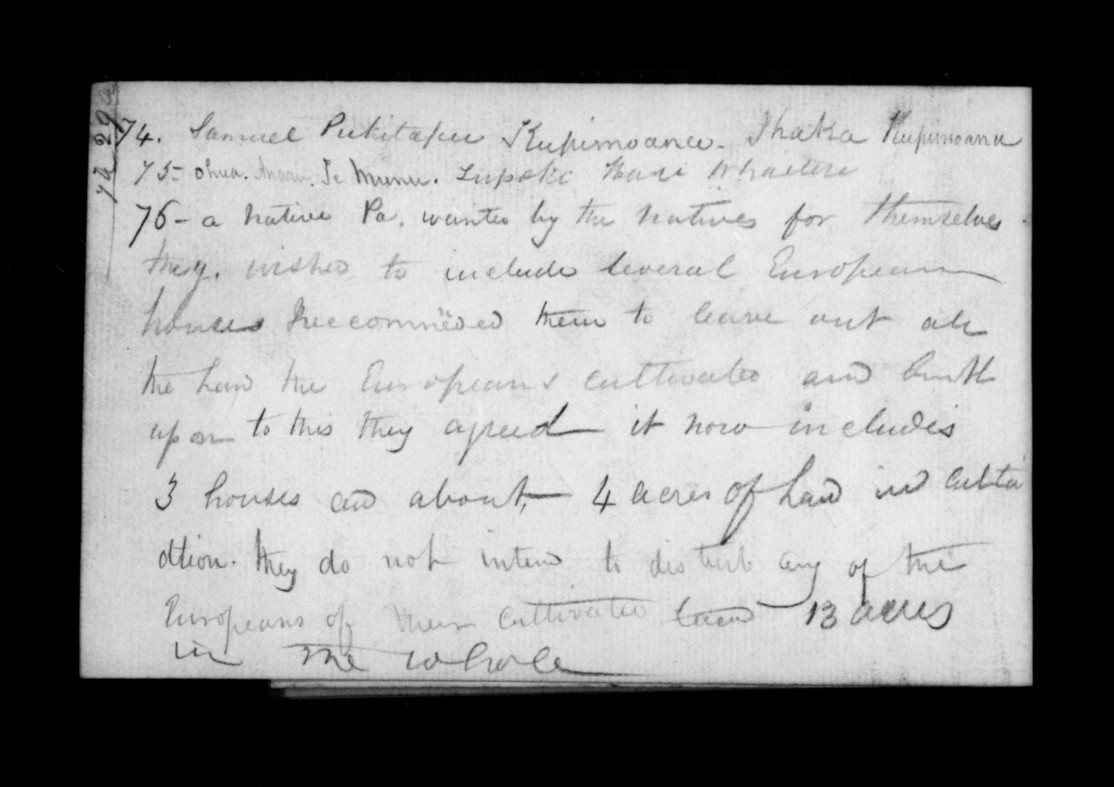 74. Samuel Pukitapu Kupimoana. Ihaka Kupimoana
75- Te Munu. Hari
76- a native Pa, wanted by the natives for themselves
they, wished to include several European
houses I reccommeded them to leave out all
the Land the Europeans cultivated and built
upon to this they agreed it now includes
3 houses and about, 4 acres of Land ind Cultiv
dtion. they do not intend to disturb any of the
Europeans of their Cultivated land 13 acres
in the whole